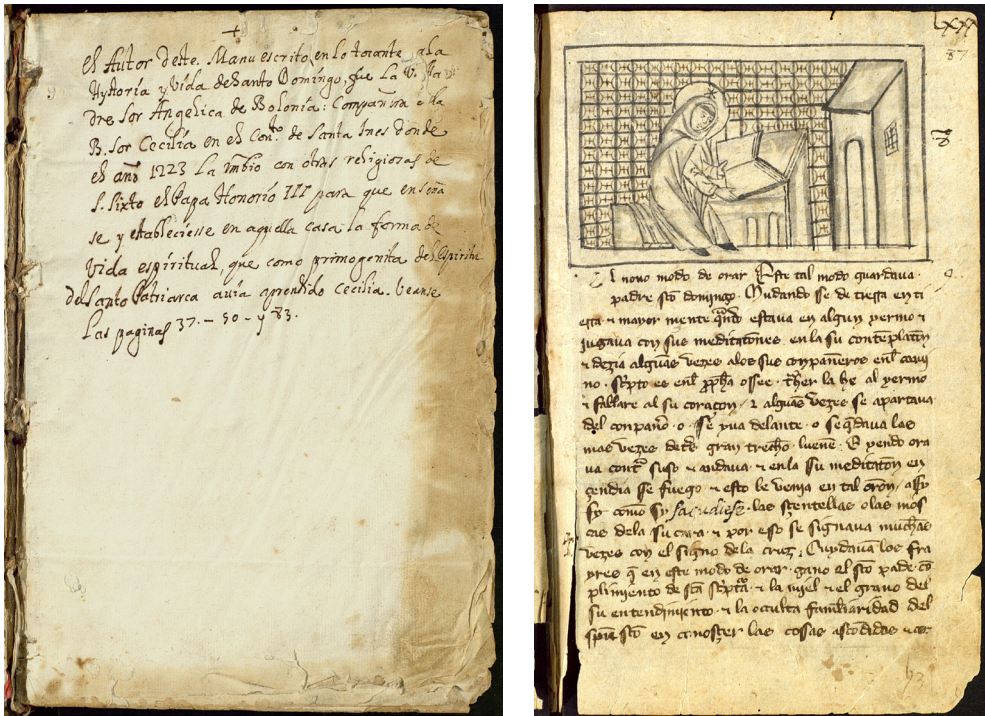 +
el Autor deste. Manuescrito, en lo tocante ala
Hystoria y Vida de Santo Domingo, fue La V.
dre Sor Angelica de Bolonia: Compañera de la
B. Sor Cecilia en el Conto. de Santa Ines donde
el año 1223 La imbio con otras religiosas de
S. Sixto el Papa Honorio III para que enseña
se y estableciesse en aquella casa la forma de
Vida espiritual, que como primogenita del Espiritu
del Santo Patriarca avia aprendido Cecilia. Veanse
Las paginas 37. - 50 - y 83.
37
l nono modo de orar Este tal modo guardava
padre sco domingo. Mudando sse de trrra en ti
erra τ mayor mente qndo estava en algun yermo τ
jugava con sus meditationes en la su contenplation
τ dezia algunas vezes alos sus conpañeros enl cami
no. scripto es enl ppha ossee. traher la he al yermo
τ fallare al su coraçon. τ algunas vezes se apartava
del conpaño. o. se yva delante. o se qdava las
mas vezes detras gran trecho. luene. E yendo ora
va contra suso τ andava. τ enla su meditation en
çendia sse fuego. τ esto le venia en tal oron, assy
sy como sy sacudiese. las scentellas olas mos
cas dela su cara. τ por esso se signava muchas
vezes con el signo dela cruz. Cuydavan los fra
yres q en este modo de orar. gano el sco padre con
plimiento de sca scripta. τ la miel. τ el grano del
su entendimiento. τ la oculta familiaridad del
spu sco en conosçer las cossas ascodidas